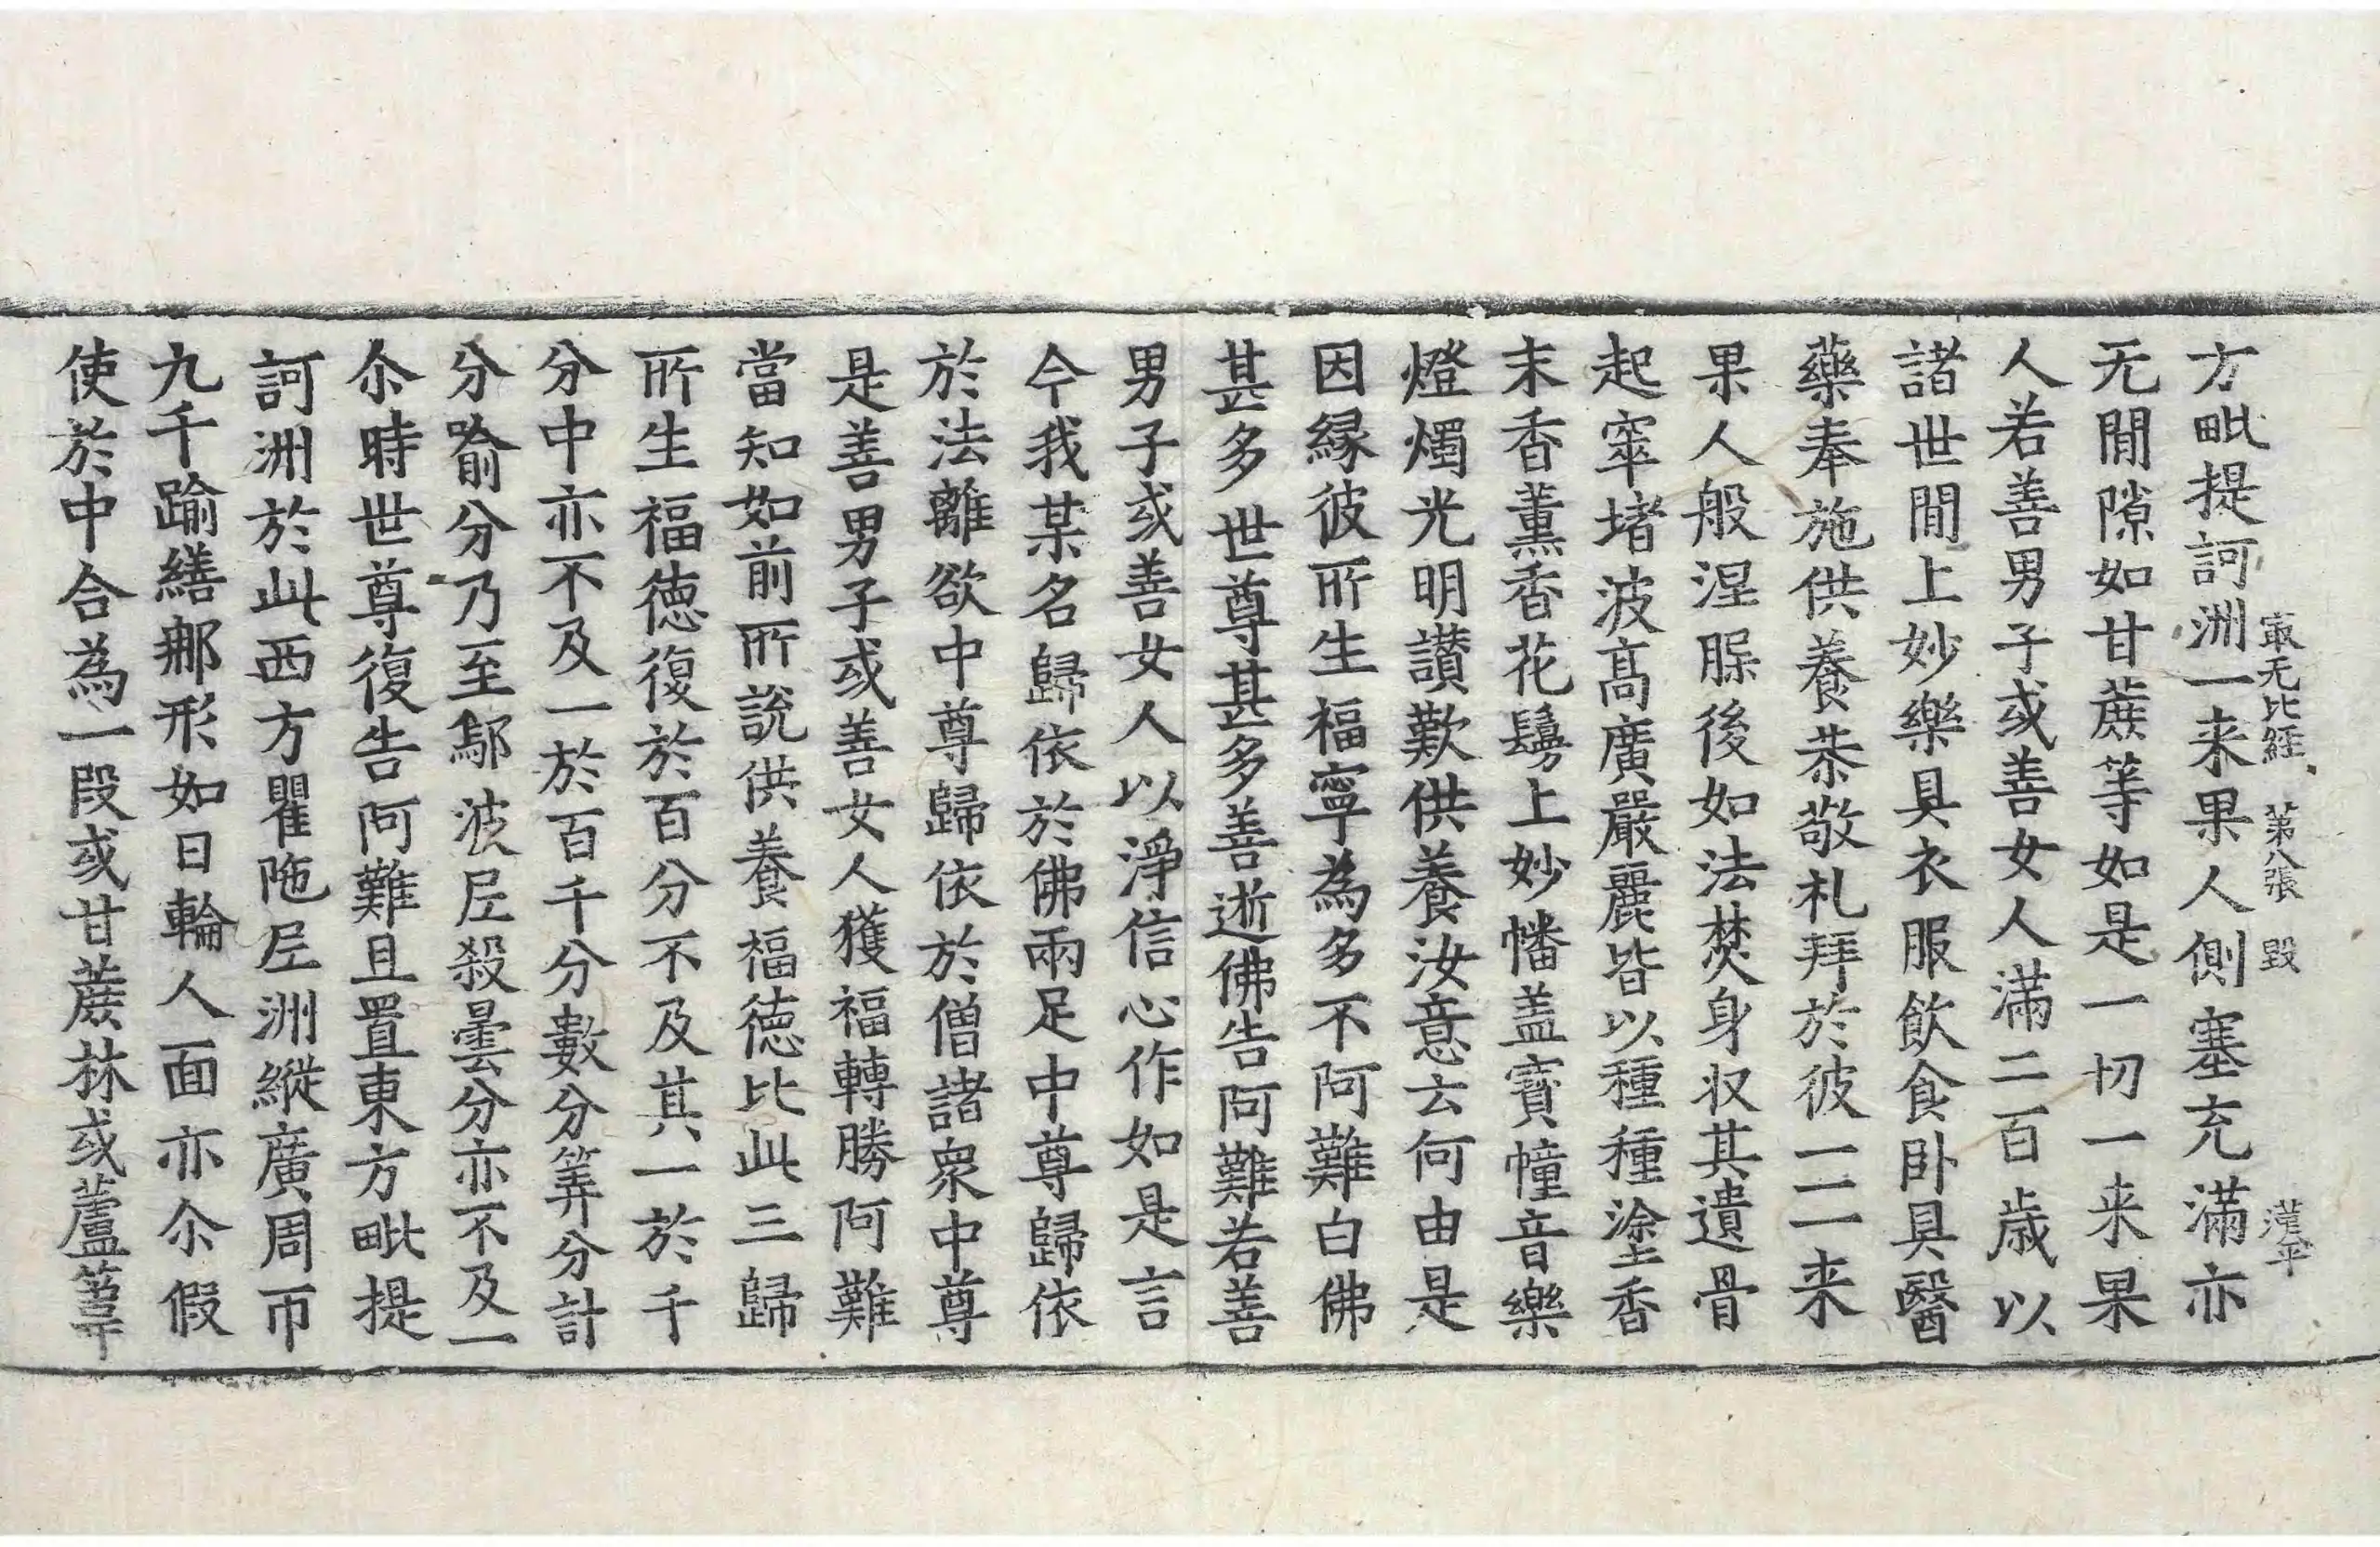 冣无比経　第八張　毀　漢平
方毗提訶洲一来果人側塞充滿亦
无閒隙如甘蔗等如是一切一来果
人若善男子或善女人滿二百歳以
諸世閒上妙樂具衣服飲食卧具醫
藥奉施供養恭敬礼拜於彼一一一来
果人般涅槃後如法焚身収其遺骨
起窣堵波髙廣嚴麗皆以種種塗香
末香薫香花鬘上妙幡盖寳幢音樂
燈燭光明讃歎供養汝意云何由是
因縁彼所生福寧為多不阿難白佛
甚多世尊甚多善逝佛告阿難若善
男子或善女人以淨信心作如是言
今我某名歸依於佛兩足中尊歸依
於法離欲中尊歸依於僧諸衆中尊
是善男子或善女人獲福轉勝阿難
當知如前所說供養福徳比此三歸
所生福徳復於百分不及其一於千
分中亦不及一於百千分數分筭分計
分喻分乃至鄔波尼殺曇分亦不及一
尒時世尊復告阿難且置東方毗提
訶洲於此西方瞿陁尼洲縱廣周帀
九千踰繕那形如日輪人面亦尒假
使於中合為一段或甘蔗林或蘆葦